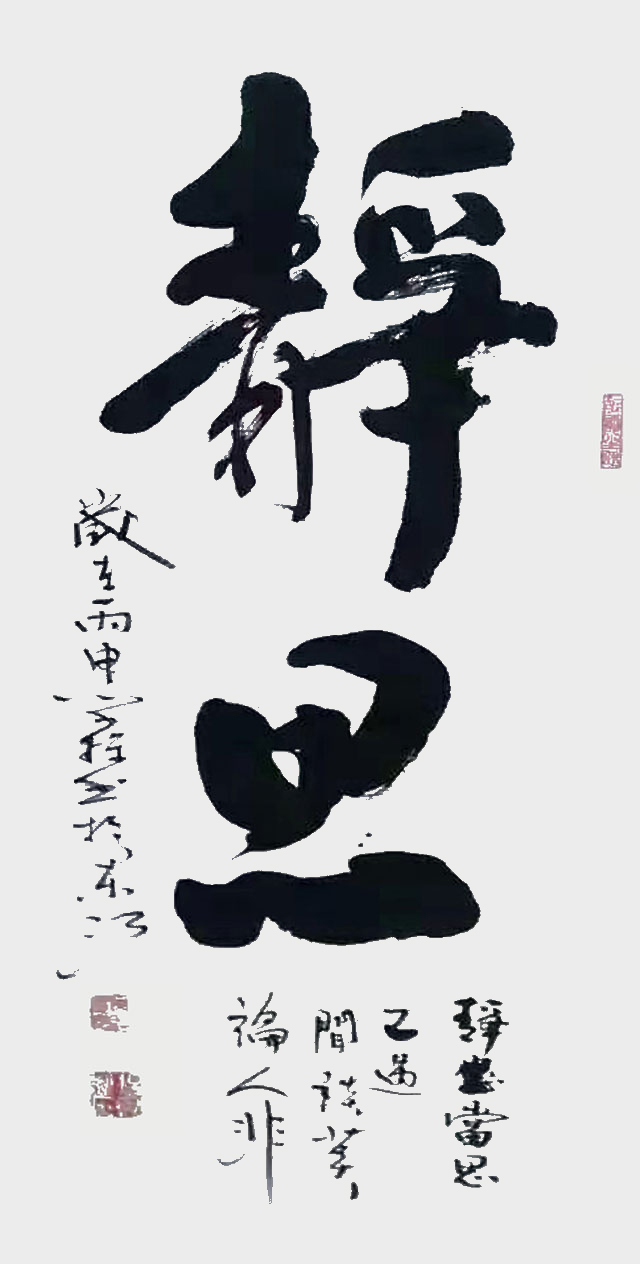 靜思
靜坐當思
己過
間談莫
論人非
歲在丙申书於东江